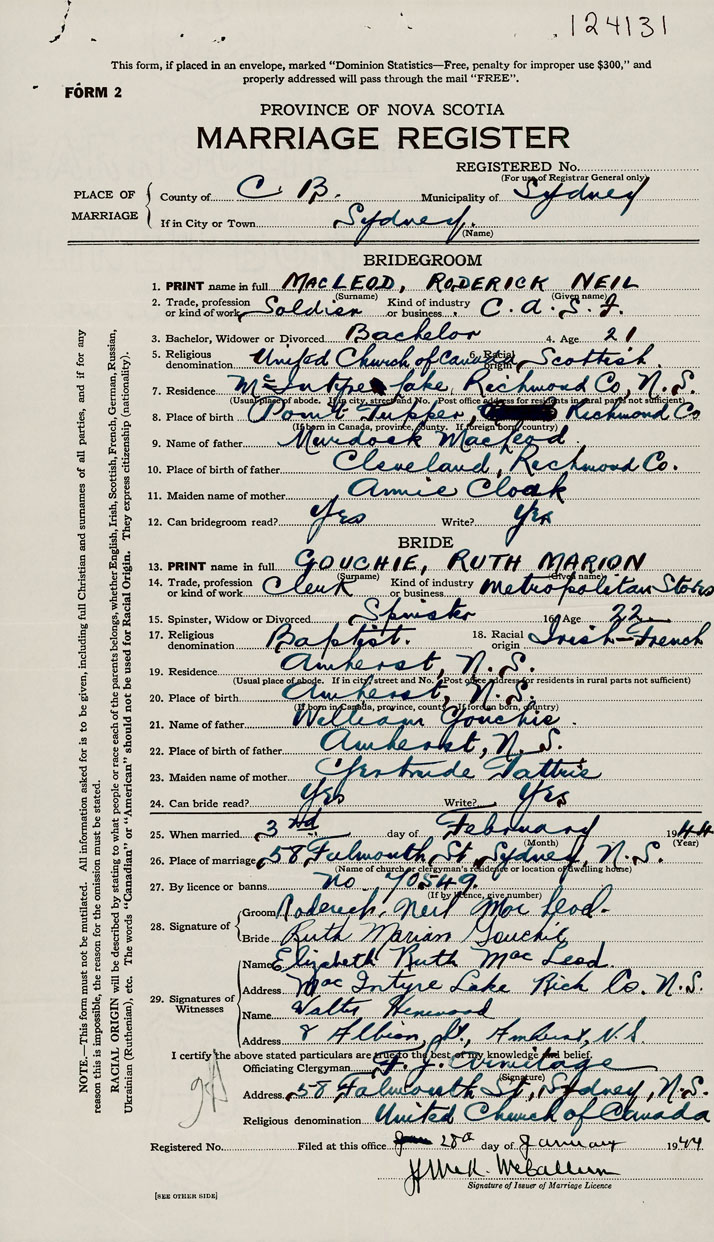 124131
This form, if placed in an envelope, marked "Dominion Statistics—Free, penalty for improper use $300," and
properly addressed will pass through the mail "FREE".
FORM 2
PROVINCE OF NOVA SCOTIA
MARRIAGE REGISTER
REGISTERED No.
(For use of Registrar General only)
PLACE OF MARRIAGE
County of C. B. Municipality of Sydney
If in City or Town Sydney.
(Name)
BRIDEGROOM
1. PRINT name in full MACLEOD, RODERICK NEIL
(Surname) (Given name)
2. Trade, profession or kind of work Soldier Kind of industry or business C. A. S. F.
3. Bachelor, Widower or Divorced Bachelor 4. Age 21
5. Religious denomination United Church of Canada 6. Racial origin Scottish
7. Residence McIntyre Lake, Richmond Co, N. S.
(Usual place of abode. If in city, street and No. Post office address for residents in rural parts not sufficient)
8. Place of birth Point Tupper, Richmond Co
(If born in Canada, province, county. If foreign born, country)
9. Name of father Murdock MacLeod.
10. Place of birth of father Cleveland, Richmond Co.
11. Maiden name of mother Annie Cloak
12. Can bridegroom read? Yes Write? Yes
BRIDE
13. PRINT name in full GOUCHIE, RUTH MARION
(Surname) (Given name)
14. Trade, profession or kind of work Clerk Kind of industry or business Metropolitan Stores
15. Spinster, Widow or Divorced Spinster 16. Age 22
17. Religious denomination Baptist. 18. Racial origin Irish-French
19. Residence Amherst, N. S.
(Usual place of abode. If in city, street and No. Post office address for residents in rural parts not sufficient)
20. Place of birth Amherst, N. S.
(If born in Canada, province, county. If foreign born, country)
21. Name of father William Gouchie.
22. Place of birth of father Amherst, N. S.
23. Maiden name of mother Gertrude Tattrie
24. Can bride read? Yes Write? Yes
25. When married 3rd day of February 1944
(Month) (Year)
26. Place of marriage 58 Falmouth St, Sydney, N. S.
(Name of church or clergyman's residence or location of dwelling house)
27. By licence or banns no. 70549.
(If by licence, give number)
28. Signature of
Groom Roderick Neil MacLeod.
Bride Ruth Marion Gouchie
29. Signatures of Witnesses
Name Elizabeth Ruth MacLeod
Address MacIntyre Lake Rich Co. N.S.
Name Walter Henwood
Address 8 Albion St., Amherst, N.S.
I certify the above stated particulars are true to the best of my knowledge and belief.
Officiating Clergyman F. J. Armitage
(Signature)
Address 58 Falmouth St, Sydney, N.S.
Religious denomination United Church of Canada
Registered No. Filed at this office 28th day of January 1944
McCallum
Signature of Issuer of Marriage Licence
[SEE OTHER SIDE]
NOTE.—This form must not be mutilated. All information asked for is to be given, including full Christian and surnames of all parties, and if for any
reason this is impossible, the reason for the omission must be stated.
RACIAL ORIGIN will be described by stating to what people or race each of the parents belongs, whether English, Irish, Scottish, French, German, Russian,
Ukrainian (Ruthenian), etc. The words "Canadian" or "American" should not be used for Racial Origin. They express citizenship (nationality).